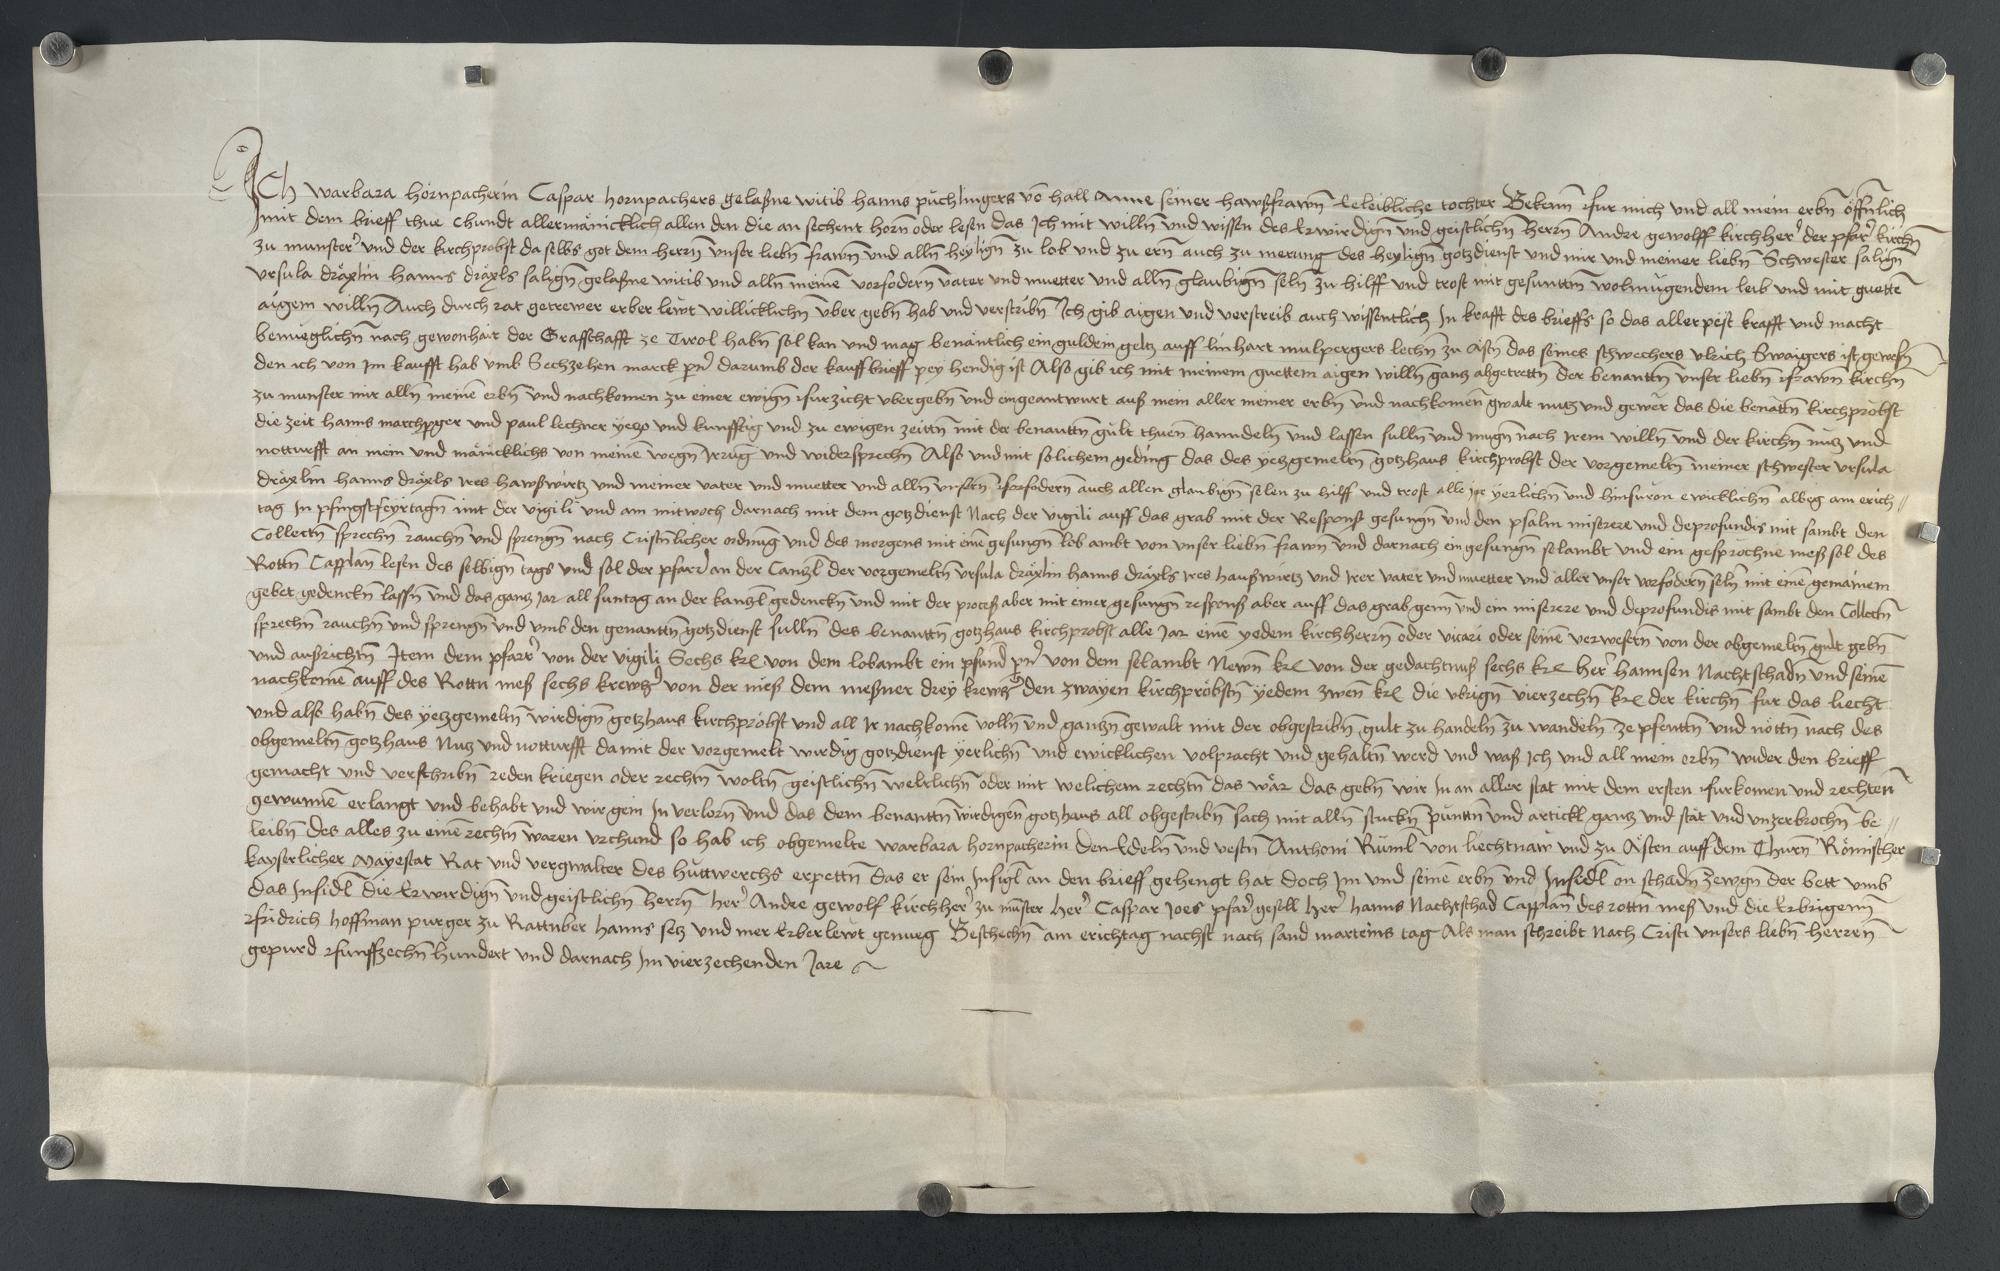 Ich Warbara hörnpacherin Caspar hornpachers gelaßne witib hanns püchlingers vō hall Anne seiner hawßfrawn Eeleibliche tochter Bekenn fur mich und all mein erbn̄ öffnlich
mit dem brieff thue chundt allermänicklich allen den die an sechent hörn̄ oder lesen das Ich mit willn̄ und wissen des Erwirdign̄ und geistlichn̄ herrn̄ Andre gewolff kirchher der pfar kirchn̄
zu munster und der kirchprobst da selbs got dem herrn̄ unser liebn̄ frawn̄ und alln̄ heylign̄ zu lob und zu ern̄ auch zu merung des heylign̄ gotzdienst und mir und meiner liebn̄ Schwester salign̄
Ursula dräxlin hanns dräxls salign̄ gelaßne witib und alln̄ meinē vorfodern̄ vater und muetter und alln̄ glaubign̄ seln̄ zu hilff und trost mit gesunttm̄ wolmügendem leib und mit guettē
aigem willn̄ Auch durch rat getrewer erber lewt willicklichn̄ uber gebn̄ hab und verstribn̄ Ich gib aigen und verstreib auch wissentlich In krafft des brieffs so das aller pest krafft und macht
bemueglichn̄ nach gewonhait der Graffschafft ze Tirol habn̄ sol kan und mag benäntlich ein guldein geltz auff linhart mulpergers lechn̄ zu Astn̄ das seines schwechers ulrich Swaigers ist gewesn̄
den ich von Im kaufft hab umb Sechzehen marck pn̄ darumb der kauff brieff pey hendig ist Also gib ich mit meinem guettem aigen willn̄ ganz abgetrettn̄ der benanttn̄ unser liebn̄ frawn̄ kirchn̄
zu munster mir alln̄ meinē erbn̄ und nachkomen zu einer ewign̄ furzicht ubergebn̄ und eingeantwurt auß mein aller meiner erbn̄ und nachkomen gwalt nutz und gewer das die benāttn̄ kirchpröbst
die zeit hanns marchpger und paul lechner yetzo und kunfftig und zu ewigen zeittn̄ mit der benanttn̄ gült thuen hanndeln̄ und lassen sulln̄ und mugn̄ nach Irem willn̄ und der kirchn̄ nutz und
notturfft an mein und mänicklichs von meinē wegn̄ Irrūg und widersprechn̄ Also und mit solichem geding das des yetzgemeltn̄ gotzhaus kirchpröbst der vorgemeltn̄ meiner schwester Ursula
dräxlin hanns dräxls Ires hawßwirtz und meiner vater und muetter und alln̄ unsern̄ forfodern̄ auch allen glaubign̄ selen zu hilff und trost alle Jar yerlichn̄ und hinfüron ewicklichn̄ albeg am erich
tag In pfingstfeyrtagn̄ mit der vigili und am mitwoch darnach mit dem gotzdienst Nach der vigili auff das grab mit der Respons gesungn̄ und den psalm miserere und deprofundis mit sambt den
Collectn̄ sprechn̄ rauchn̄ und sprengn̄ nach Cristn̄licher ordnūg und des morgens mit einē gesungn̄ lob ambt von unser liebn̄ frawn̄ und darnach ein gesungn̄ selambt und ein gesprochne meß sol des
Rottn̄ Capplan̄ lesen des selbign̄ tags und sol der pfarr an der Canzl̄ der vorgemeltn̄ Ursula dräxlin hanns dräxls Ires haußwirtz und Irer vater und muetter und aller unser vorfodern̄ seln̄ mit einē gemainem
gebet gedenckn̄ lassn̄ und das ganz Jar all suntag an der kanzl̄ gedenckn̄ und mit der proceß aber mit einer gesungn̄ respons aber auff das grab genn̄ und ein miserere und deprofundis mit sambt den Collectn̄
sprechn̄ rauchn̄ und sprengn̄ und umb den genanttn̄ gotzdienst sulln̄ des benanttn̄ gotzhaus kirchprobst alle Jar einē yedem kirchherrn̄ oder vicari oder seinē verwesern̄ von der obgemeltn̄ gult gebn̄
und außrichtn̄ Item dem pfarr von der vigili Sechs kr von dem lobambt ein pfund pn̄ von dem selambt Newn̄ kr von der gedachtnuß sechs kr her hannsen Nachtschadn̄ und seinē
nachkomē auff des Rottn̄ meß sechs krewtz von der meß dem meßner drey krewtz den zwayen kirchpröbstn̄ yedem zwen kr die ubrign̄ vierzechn̄ kr der kirchn̄ fur das liecht
und also habn̄ des yetzgemeltn̄ wirdign̄ gotzhaus kirchpröbst und all Ir nachkomē volln̄ und ganzn̄ gewalt mit der obgestribn̄ gult zu handeln̄ zu wandeln̄ ze pfenttn̄ und nöttn̄ nach des
obgemeltn̄ gotzhaus Nutz und notturfft da mit der vorgemelt wirdig gotzdienst yerlichn̄ und ewicklichen volpracht und gehaltn̄ werd und waß Ich und all mein erbn̄ wider den brieff
gemacht und verschribn̄ reden kriegen oder rechtn̄ woltn̄ geistlichn̄ weltlichn̄ oder mit welichem rechtn̄ das wär das gebn̄ wir In an aller stat mit dem ersten furkomen und rechten
gewunnē erlangt und behabt und wir gein In verlorn̄ und das dem benanttn̄ wirdigen gotzhaus all obgestribn̄ sach mit alln̄ stuckn̄ punttn̄ und artickl ganz und stät und unzerbrochn̄ be
leibn̄ des alles zu einē rechtn̄ waren urchund so hab ich obgemelte Warbara hornpacherin den Edeln̄ und vestn̄ Anthoni Ruml̄ von liechtnaw und zu Asten auff dem Thurn̄ Römischer
kayserlicher Mayestat Rat und vergwalter des hüttwerchs erpettn̄ das er sein Insigl an den brieff gehengt hat doch Im und seinē erbn̄ und Insidl̄ on schadn̄ zewgn̄ der bett umb
das Insidl̄ die Erwirdign̄ und geistlichn̄ herrn̄ her Andre gewolf kirchher zu mūster her Caspar Joes pfar gesell her hanns Nachtschad Capplan̄ des rottn̄ meß und die Erbrigenn̄
fridrich hoffman purger zu Rattnber hanns setz und mer Erber lewt genueg Beschechn̄ am erichtag nachst nach sand marteins tag Als man schreibt Nach Cristi unsers liebn̄ herren̄
gepurd funffzechn̄ hundert und darnach Im vierzechenden Jare